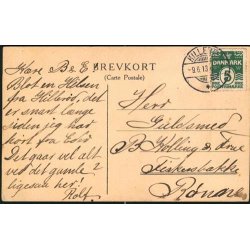 BREVKORT
(Carte Postale)
HILLERØD
9.6.13
DANMARK
5
Kære B & E
Blot en Hilsen
fra Hillerød, det
er snart længe
siden jeg har
hørt fra Eder
Det gaar vel alt
ved det gamle?
ligesaa her!
Rolf.
Herr
Guldsmed
B Kølling & Frue
Fiskerbakke
Rønne